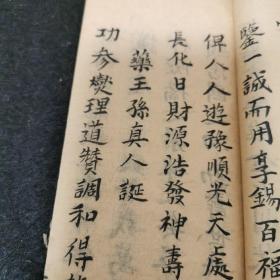 鑒一誠而用享錫百福
俾人人遊豫順光天處
長化日財源浩發神壽
藥王孫真人誕
功參燮理道贊調和得